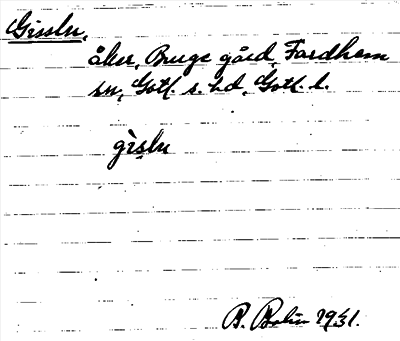 Gissln,
åker, Bruge gård, Fardhem
sn, Gotl. s. hd, Gotl. l.
gisln
B. Bolin 1931.